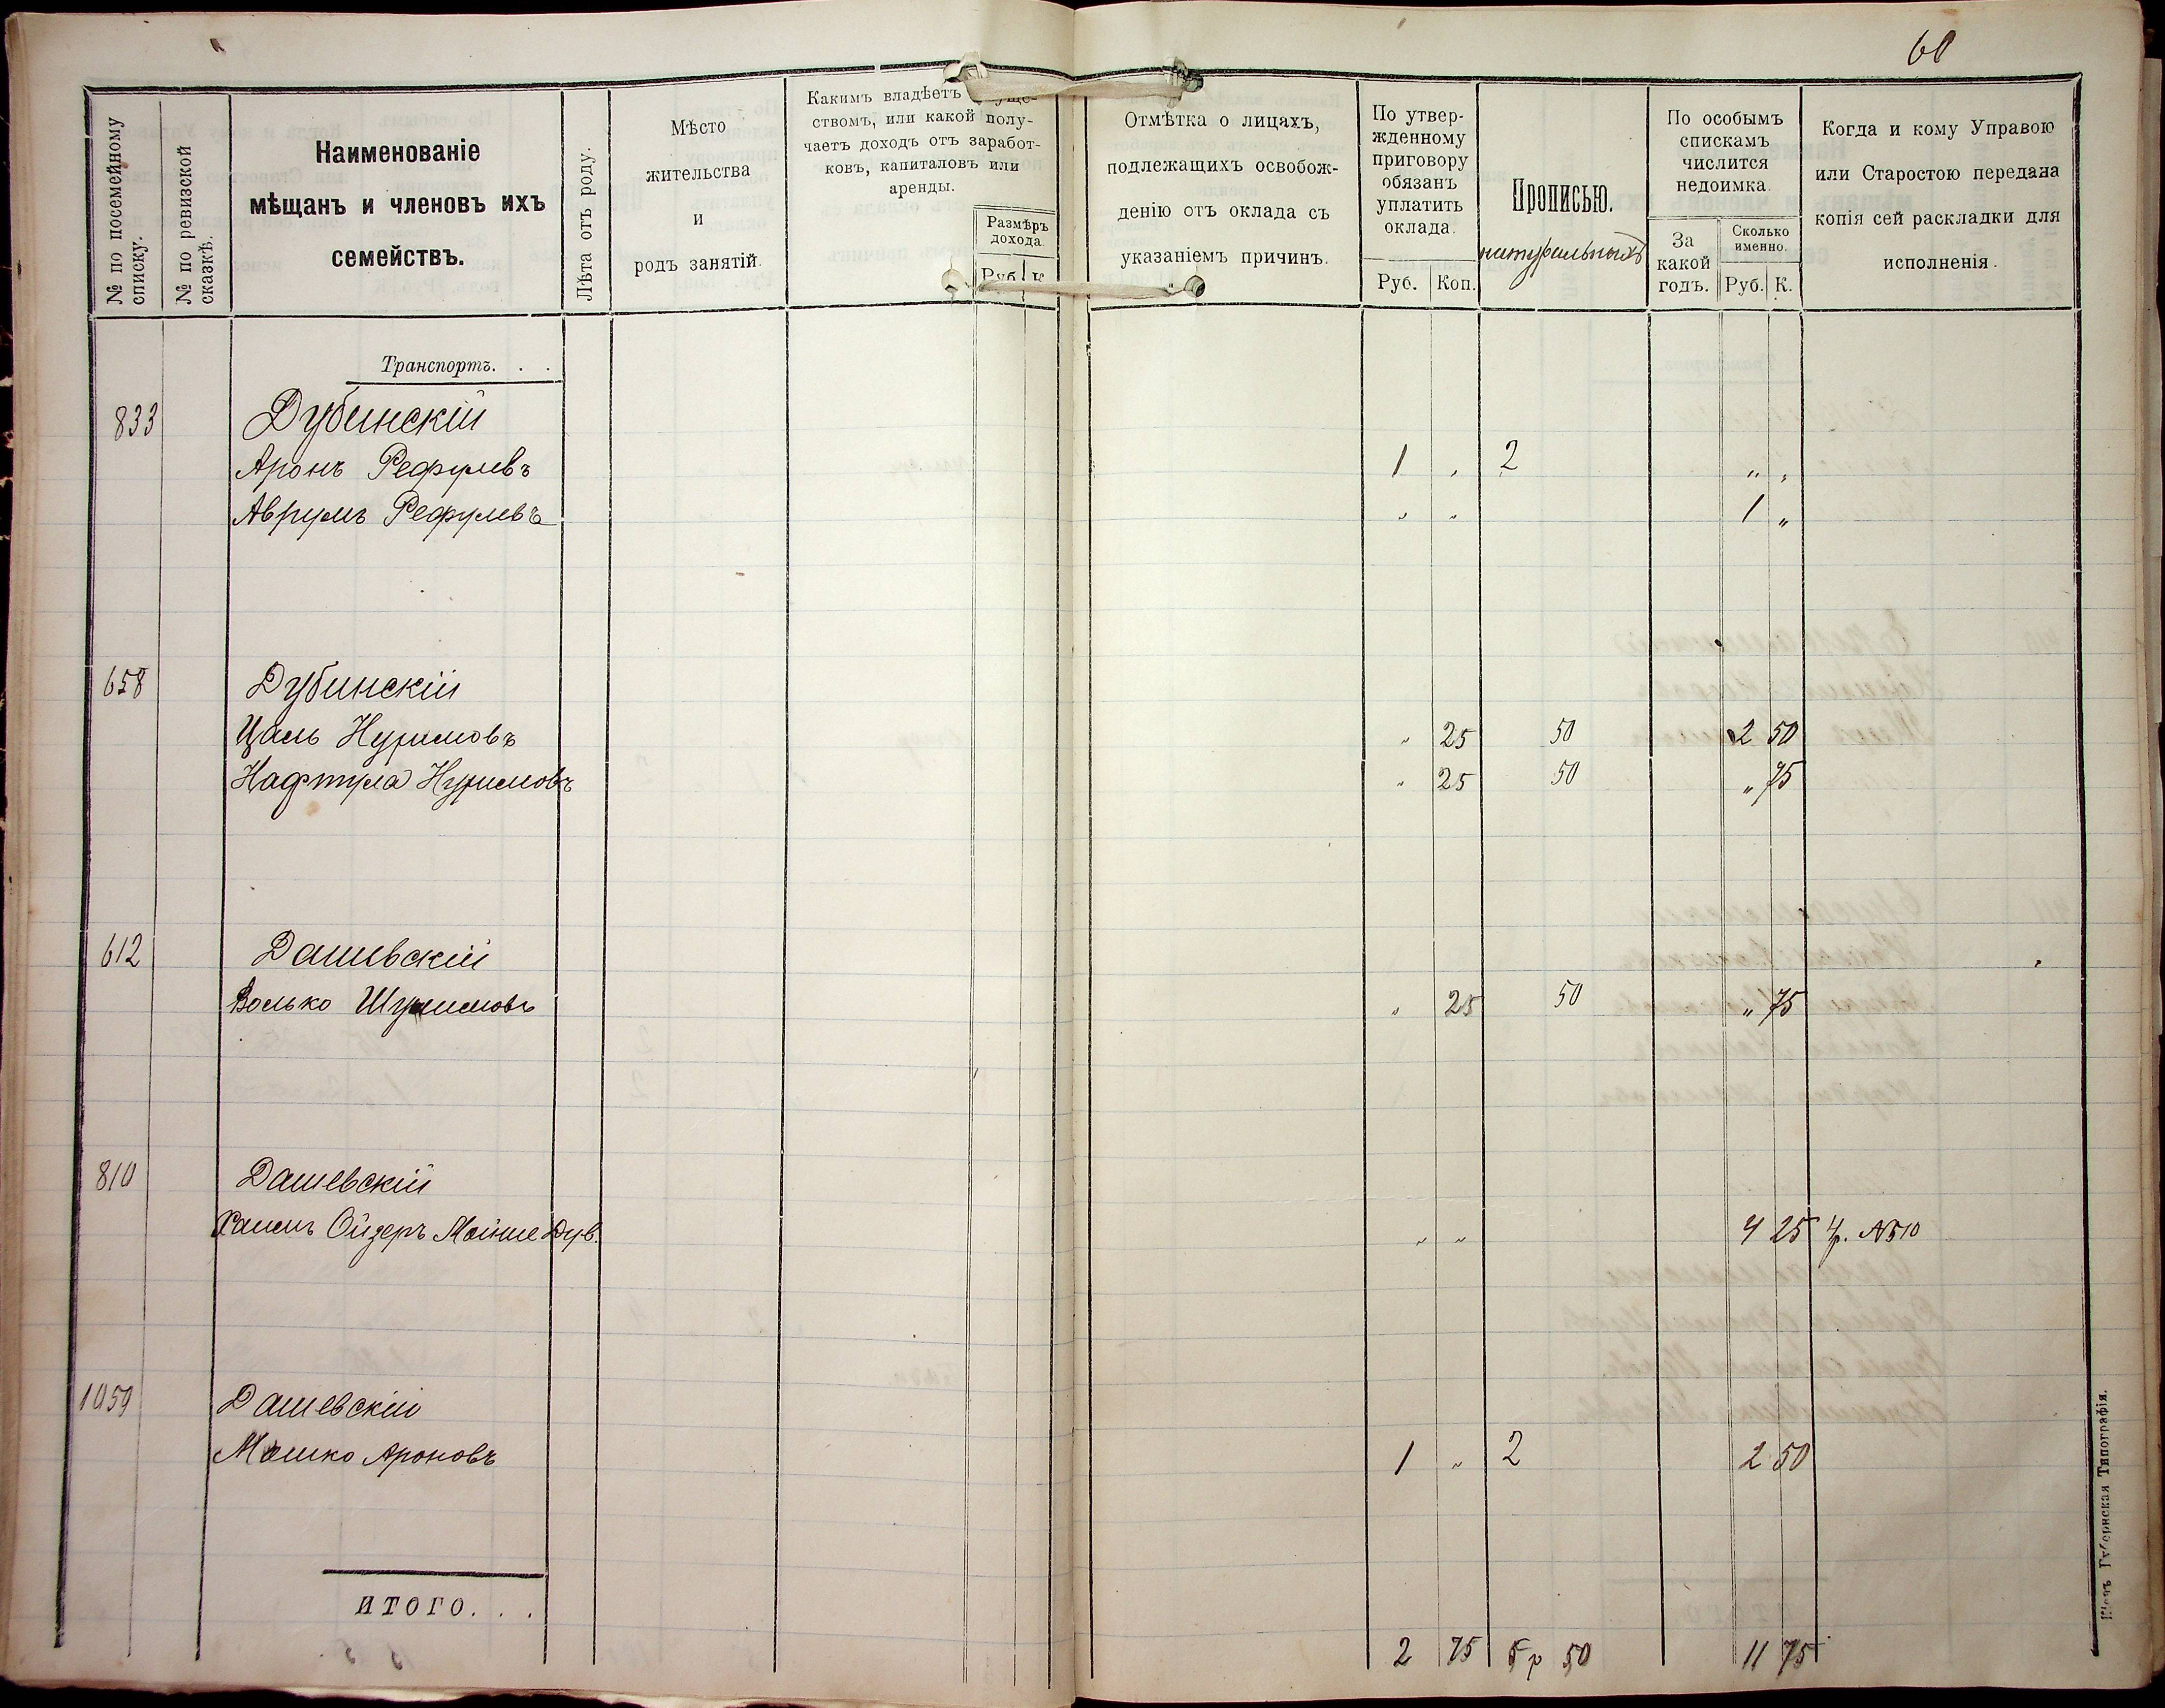 60
№ по посемейному списку.
№ по ревизской сказкѣ.
Наименованіе
мѣщанъ и членовъ ихъ
семействъ.
Лѣта отъ роду.
Мѣсто
жительства
и
родъ занятій.
Какимъ владѣетъ
ствомъ, или какой полу-
чаетъ доходъ отъ заработ-
ковъ, капиталовъ или
аренды.
Размѣръ
дохода.
Руб. К
Отмѣтка о лицахъ,
подлежащихъ освобож-
денію отъ оклада съ
указаніемъ причинъ.
По утвер-
жденному
приговору
обязанъ
уплатить
оклада.
Руб. Коп.
Прописью.
натуральныхъ
По особымъ
спискамъ
числится
недоимка.
За
какой
годъ.
Сколько
именно.
Руб. К.
Когда и кому Управою
или Старостою передана
копія сей раскладки для
исполненія.
Транспортъ. . .
833 Дубинскій
Аронъ Рефулевъ 1 „ 2 „ „
Аврумъ Рефулевъ „ „ 1 „
658 Дубинскій
Цаль Нухимовъ „ 25 50 2 50
Нафтула Нухимовъ „ 25 50 „ 75
612 Дашевскій
Волько „ 25 50 „ 75
810 Дашевскій
Хаимъ Ойзеръ Мойше Дув. „ „ 4 25 4р. №510
1059 Дашевскій
Мошко Ароновъ 1 „ 2 2 50
ИТОГО. . .
2 75 5р 50 11 75
Кіевъ Губернская Типографія.